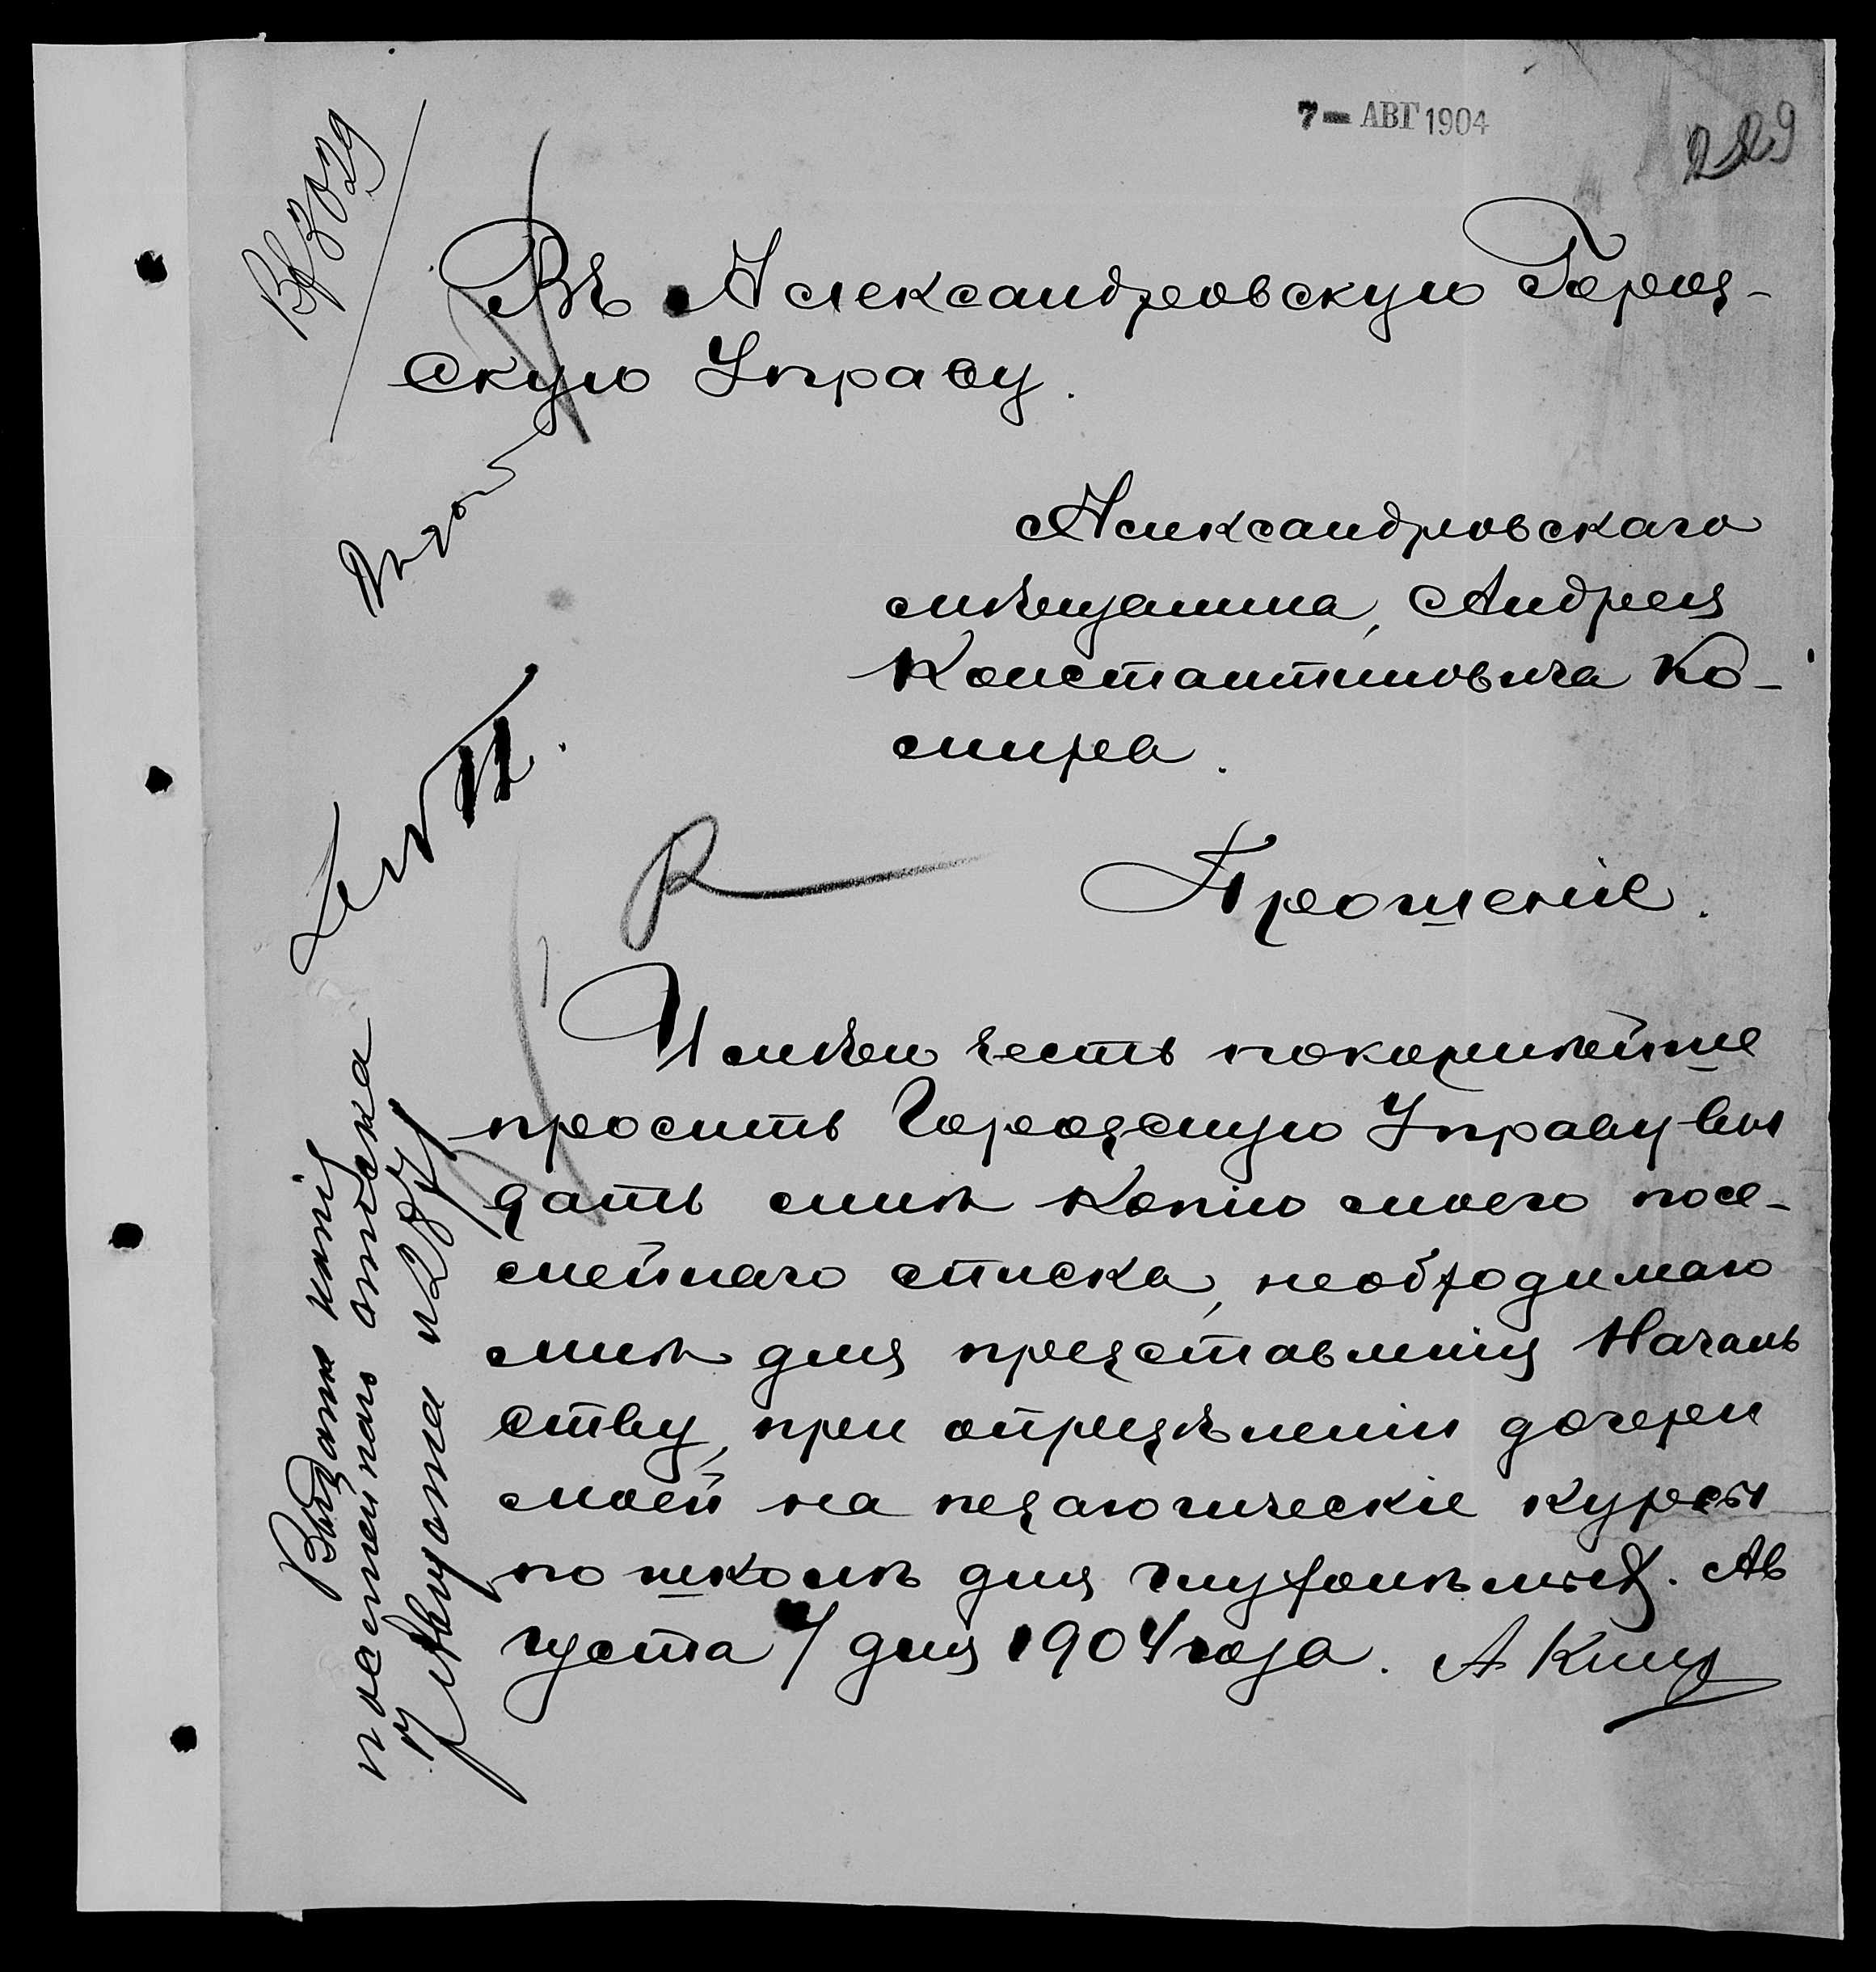 7 – АВГ 1904
229
Вх 3029
Въ Александровскую Город-
скую Управу.
Александровскаго
мѣщанина, Андрея
Константиновича Ко-
Прошеніе.
Имѣю честь покорнѣйше
просить Городскую Управу вы
дать мнѣ копію моего посе-
мейнаго списка, необходимаго
мнѣ для представленія Началь
ству, при опредѣленіи дочери
моей на педагогическіе курсы
по школѣ для глухонѣмыхъ. Ав
густа 7 дня 1904 года. А
Выдана копія
посемейнаго списка
7 Августа № 2871